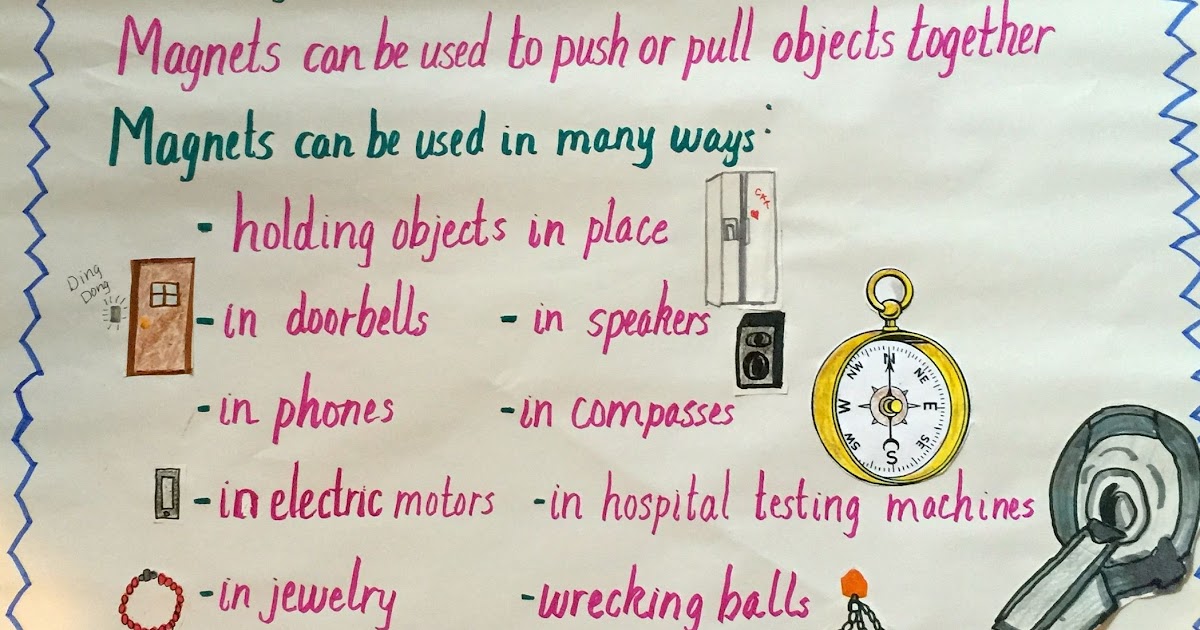 Magnets can be used to push or pull objects together
Magnets can be used in many ways:
- holding objects in place
Ding Dong
- in doorbells - in speakers
- in phones - in compasses
N
NE
E
SE
S
SW
W
NW
- in electric motors - in hospital testing machines
- in jewelry - wrecking balls